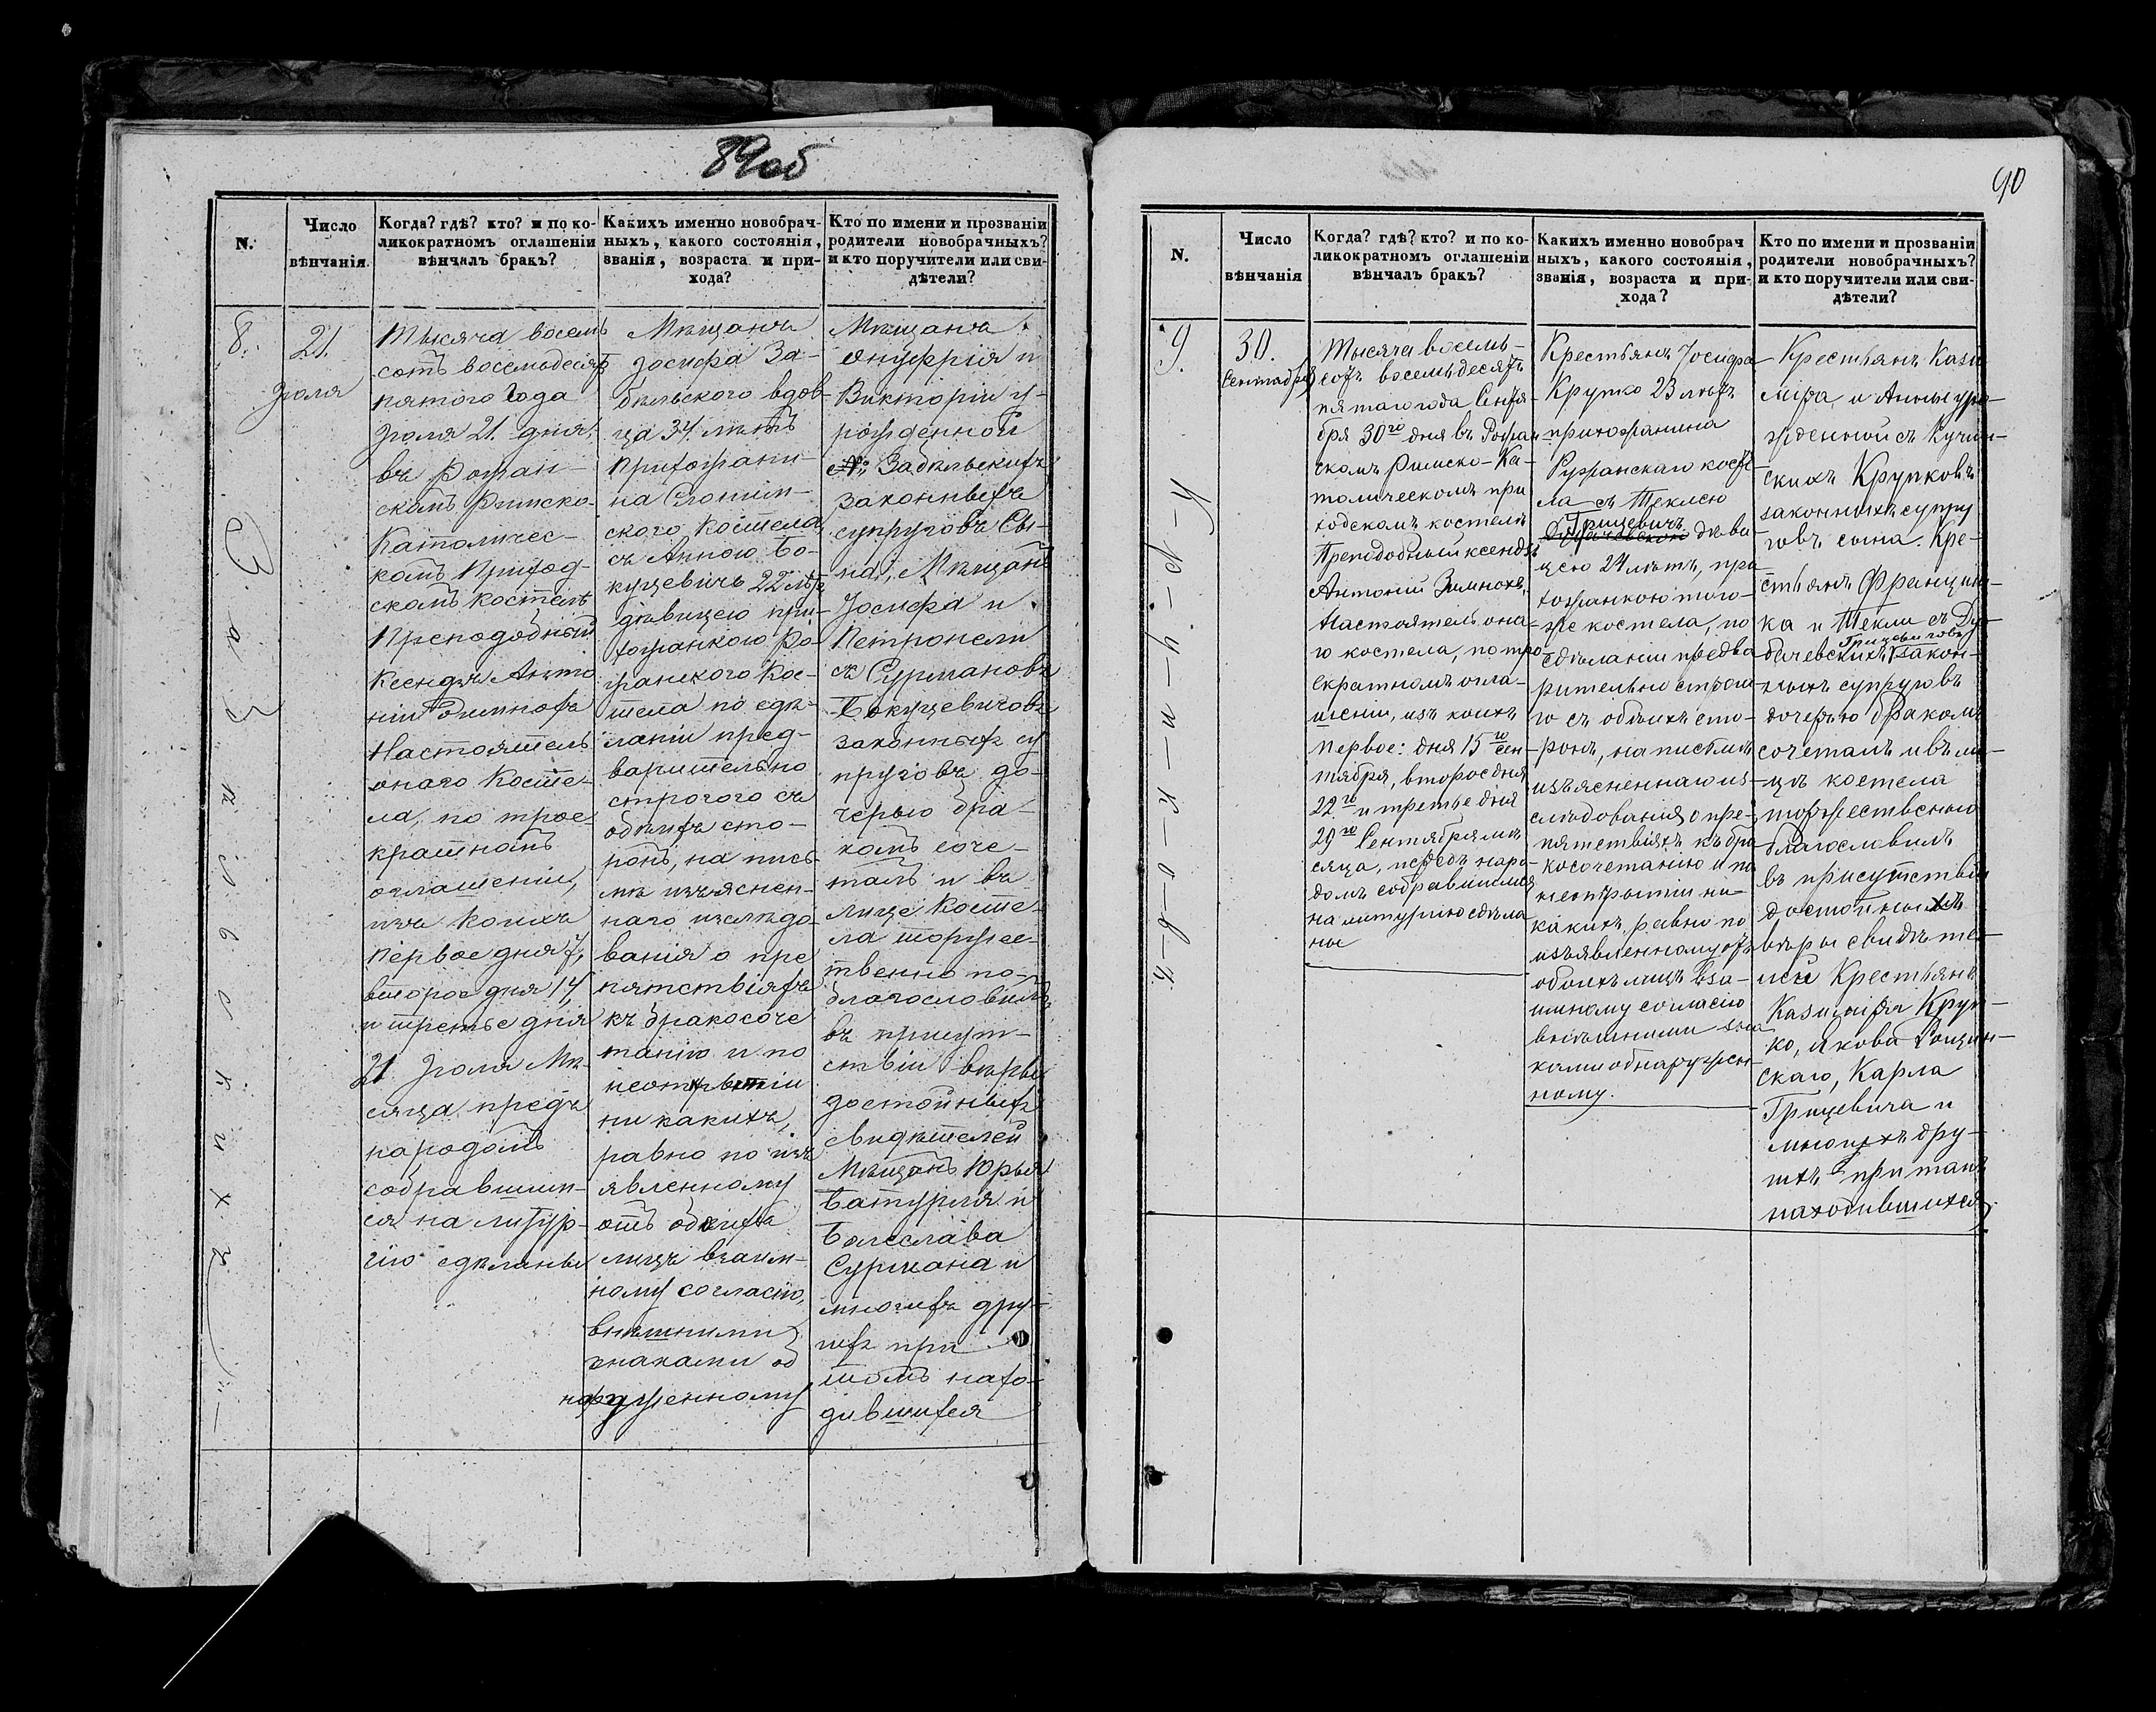 89об
N.
Число
вѣнчанія.
Когда? гдѣ? кто? и по ко-
ликократномъ оглашеніи
вѣнчалъ бракъ?
Какихъ именно новобрач-
ныхъ, какого состоянія,
званія, возраста и при-
хода?
Кто по имени и прозванію
родители новобрачныхъ?
и кто поручители или сви-
дѣтели?
8.
21.
Іюля
Тысяча восемь
сотъ восемьдесятъ
пятого года
Іюля 21. дня,
въ Рожан-
скомъ Римско-
Католичес-
комъ Приход-
скомъ костелѣ
Преподобный
Ксендзъ Анто
ній Зимнохъ
Настоятель
онаго Косте-
ла, по трое-
кратномъ
оглашеніи,
изъ коихъ
первое дня 7,
второе дня 14,
и третье дня
21 Іюля Мѣ-
сяца предъ
народомъ
собравшим-
ся на литур-
гію сдѣланы
Мѣщанъ
Іосифа За-
бѣльского вдов-
ца 34. лѣтъ
прихожани-
на Слоним-
ского костела
съ Анною Бо-
куцевичъ 22 лѣтъ
дѣвицею при-
хожанкою Ро-
жанского Кос-
тела по сдѣ-
ланіи пред-
варительно
строгого съ
обѣихъ сто-
ронъ, на пись-
мѣ изъяснен-
наго изслѣдо-
ванія о пре
пятствіяхъ
къ бракосоче
танію и по
неоткрытіи
ни какихъ,
равно по изъ
явленному
отъ обѣихъ
лицъ взаим-
ному согласію,
внѣшними
знаками об
наруженному
Мѣщанъ
Онуфрія и
Викторіи у-
рожденной
N: Забѣльскихъ
законныхъ
супруговъ Сы-
на, Мѣщанъ
Іосифа и
Петронели
съ Сурмановъ
Бокуцевичовъ
законныхъ су
пруговъ до-
черью бра-
комъ соче-
талъ и въ
лице Косте-
ла торжес-
твенно по-
благословилъ
въ присут-
ствіи вѣры
достойныхъ
свидѣтелей
Мѣщанъ Юрья
Батурля и
Болеслава
Сурмана и
многихъ дру-
гихъ при
томъ нахо-
дившихся
90
N.
Число
вѣнчанія
Когда? гдѣ? кто? и по ко-
ликократномъ оглашеніи
вѣнчалъ бракъ?
Какихъ именно новобрач
ныхъ, какого состоянія,
званія, возраста и при-
хода?
Кто по имени и прозваніи
родители новобрачныхъ?
и кто поручители или сви-
дѣтели?
9.
30.
Сентября
Тысяча восемь-
сотъ восемьдесятъ
пятаго года Сентя-
бря 30го дня въ Рожан
скомъ Римско-Ка-
толическомъ при
ходскомъ костелѣ
Преподобный ксендзъ
Антоній Зимнохъ,
Настоятель она-
го костела, по тро-
екратномъ огла-
шеніи, изъ коихъ
первое: дня 15го Сен-
тября, второе дня
22го и третье дня
29го Сентября мѣ
сяца, передъ наро-
домъ собравшимся
на литургію сдѣла
ны
Крестьянъ Іосифа
Крупко 23 лѣтъ
прихожанина
Ружанскаго косте-
ла съ Теклею
Грицевичъ
дѣви
цею 24 лѣтъ, при
хожанкою того-
же костела, по
сдѣланіи предва
рительно строга-
го съ обѣихъ сто-
ронъ, на письмѣ
изъясненнаго из-
слѣдованія о пре-
пятствіяхъ къ бра
косочетанію и по
неоткрытіи ни-
какихъ, равно по
изъявленному отъ
обоихъ лицъ вза-
имному согласію
внѣшними зна
ками обнаружен-
ному.
Крестьянъ Кази
міра и Анны уро-
жденной съ Кучин-
скихъ Крупковъ
законныхъ супру
говъ сына. Кре-
стьянъ Францишка
и Текли съ Ду-
бачевскихъ Грицевичовъ закон-
ныхъ супруговъ
дочерью бракомъ
сочеталъ и въ ли-
цѣ костела
торжественно
благословилъ
въ присутствіи
достойныхъ
вѣры свидѣте-
лей Крестьянъ
Казиміра Круп-
ко, Якова Рощин-
скаго, Карла
Грицевича и
многихъ дру-
гихъ при томъ
находившихся.